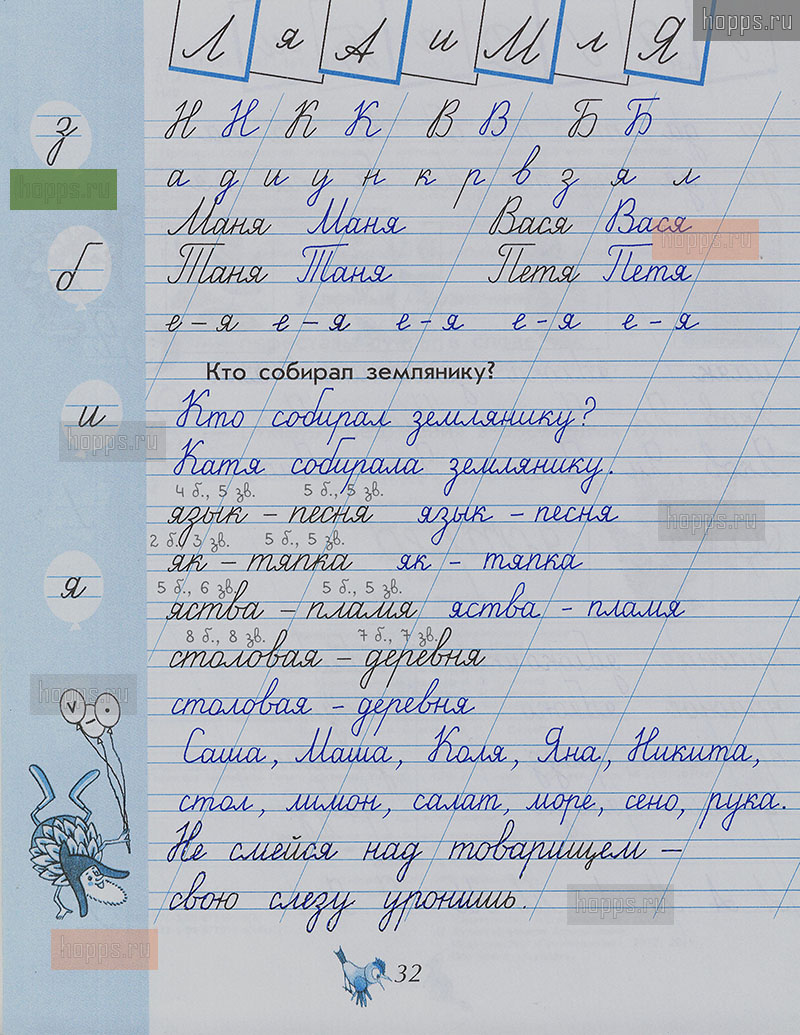 hopps.ru
Л я А и М л Я
з
Н Н К К В В Б Б
hopps.ru
а д и у н к р в з я л
Маня Маня Вася Вася
hopps.ru
б
Таня Таня Петя Петя
е – я е – я е – я е – я е – я
Кто собирал землянику?
и
Кто собирал землянику?
hopps.ru
Катя собирала землянику.
4 б., 5 зв. 5 б., 5 зв.
язык – песня язык – песня
hopps.ru
2 б., 3 зв. 5 б., 5 зв.
як – тяпка як – тяпка
я
5 б., 6 зв. 5 б., 5 зв.
яства – пламя яства – пламя
8 б., 8 зв. 7 б., 7 зв.
столовая – деревня
hopps.ru
столовая – деревня
Саша, Маша, Коля, Яна, Никита,
стол, лимон, салат, море, сено, рука.
Не смейся над товарищем –
свою слезу уронишь.
hopps.ru
hopps.ru
32